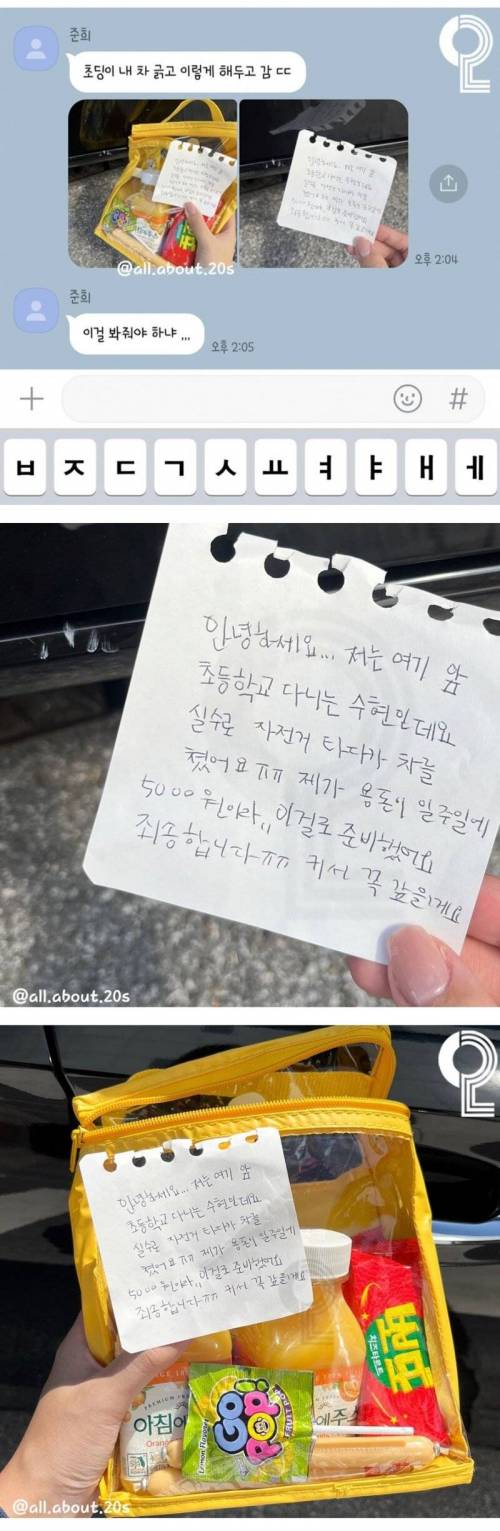 준희
초딩이 내 차 긁고 이렇게 해두고 감 ㄷㄷ
@all.about.20s
오후 2:04
준희
이걸 봐줘야 하냐 ,,,
오후 2:05
#
ㅂ ㅈ ㄷ ㄱ ㅅ ㅛ ㅕ ㅑ ㅐ ㅔ
안녕하세요... 저는 여기 앞
초등학교 다니는 수현인데요
실수로 자전거 타다가 차를
쳤어요ㅠㅠ 제가 용돈이 일주일에
5000원이라,, 이걸로 준비했어요
죄송합니다ㅠㅠ 커서 꼭 갚을게요
@all.about.20s
안녕하세요... 저는 여기 앞
초등학교 다니는 수현인데요
실수로 자전거 타다가 차를
쳤어요ㅠㅠ 제가 용돈이 일주일에
5000원이라,, 이걸로 준비했어요
죄송합니다ㅠㅠ 커서 꼭 갚을게요
치즈타르트
아침에
Orange
에주스
GO!
POP!
Lemon Flavour
@all.about.20s